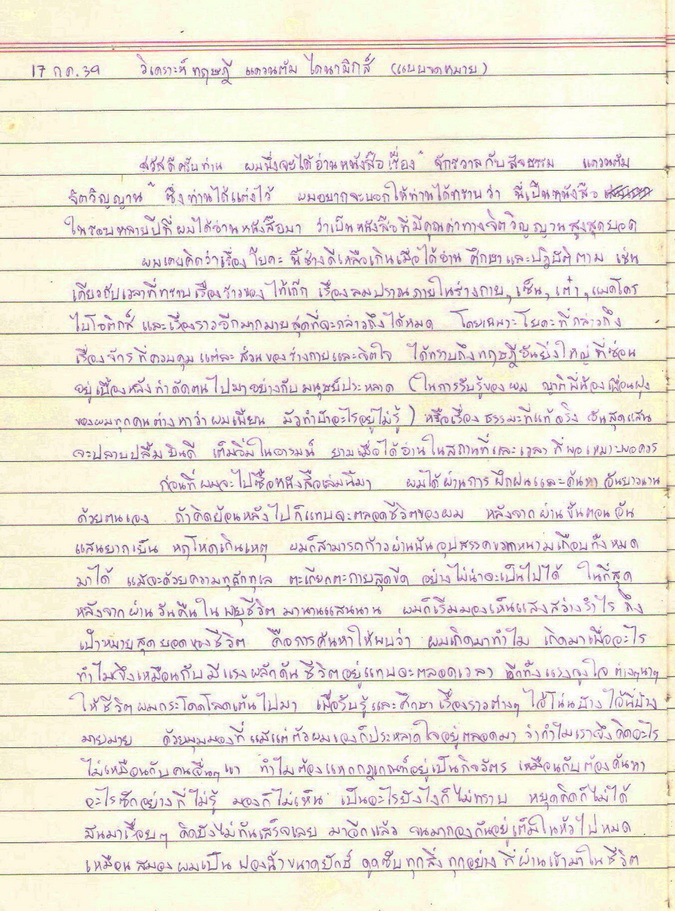 17 กค. 39 วิเคราะห์ทฤษฎี แควนตัม ไดนามิกส์ (แบบจดหมาย)
สวัสดีครับท่าน ผมพึ่งจะได้อ่านหนังสือเรื่อง " จักรวาลกับสัจธรรม แควนตัม
จิตวิญญาณ " ซึ่งท่านได้แต่งไว้ ผมอยากจะบอกให้ท่านได้ทราบว่า นี่เป็นหนังสือ
ในรอบหลายปีที่ผมได้อ่านหนังสือมา ว่าเป็นหนังสือที่มีคุณค่าทางจิตวิญญาณสูงสุดยอด
ผมเคยคิดว่าเรื่องโยคะ นี้ช่างดีเหลือเกินเมื่อได้อ่าน ศึกษาและปฏิบัติตาม เช่น
เดียวกับเวลาที่ทราบเรื่องราวของไท้เก๊ก เรื่องลมปราณภายในร่างกาย, เซ็น, เต๋า, แมคโคร
ไบโอติกส์ และเรื่องราวอีกมากมายสุดที่จะกล่าวถึงได้หมด โดยเฉพาะโยคะที่กล่าวถึง
เรื่องจักรที่ควบคุมแต่ละส่วนของร่างกายและจิตใจ ได้ทราบถึงทฤษฎีอันยิ่งใหญ่ที่ซ่อน
อยู่เบื้องหลังท่าดัดตนไปมาอย่างกับมนุษย์ประหลาด (ในการรับรู้ของผม ญาติพี่น้องเพื่อนฝูง
ของผมทุกคนต่างหาว่าผมเพี้ยน มัวทำบ้าอะไรอยู่ไม่รู้) หรือเรื่อง ธรรมะที่แท้จริง อันสุดแสน
จะปลาบปลื้มยินดี เต็มอิ่มในอารมณ์ ยามเมื่อได้อ่านในสถานที่และเวลาที่พอเหมาะพอควร
ก่อนที่ผมจะไปซื้อหนังสือเล่มนี้มา ผมได้ผ่านการฝึกฝนและค้นหาอันยาวนาน
ด้วยตนเอง ถ้าคิดย้อนหลังไปก็แทบจะตลอดชีวิตของผม หลังจากผ่านขั้นตอนอัน
แสนยากเย็น หฤโหดเกินเหตุ ผมก็สามารถก้าวผ่านพ้นอุปสรรคขวากหนามเกือบทั้งหมด
มาได้ แม้จะด้วยความทุลักทุเล ตะเกียกตะกายสุดขีด อย่างไม่น่าจะเป็นไปได้ ในที่สุด
หลังจากผ่านวันคืนในพายุชีวิต มานานแสนนาน ผมก็เริ่มมองเห็นแสงสว่างรำไร ถึง
เป้าหมายสุดยอดของชีวิต คือการค้นหาให้พบว่า ผมเกิดมาทำไม เกิดมาเพื่ออะไร
ทำไมจึงเหมือนกับมีแรงผลักดันชีวิตอยู่แทบจะตลอดเวลา อีกทั้งแรงจูงใจ ต่างๆนาๆ
ให้ชีวิตผมกระโดดโลดเต้นไปมา เพื่อรับรู้และศึกษา เรื่องราวต่างๆ ไอ้โน่นบ้าง ไอ้นี่บ้าง
มายมาย ด้วยมุมมองที่แม้แต่ตัวผมเองก็ประหลาดใจอยู่ตลอดมา ว่าทำไมเราจึงคิดอะไร
ไม่เหมือนกับคนอื่นๆเขา ทำไมต้องแหกกฎเกณฑ์อยู่เป็นกิจวัตร เหมือนกับต้องค้นหา
อะไรซักอย่างก็ไม่รู้ มองก็ไม่เห็น เป็นอะไรยังไงก็ไม่ทราบ หยุดคิดก็ไม่ได้
มันมาเรื่อยๆ คิดยังไม่ทันเสร็จเลย มาอีกแล้ว จนมากองกันอยู่เต็มในหัวไปหมด
เหมือนสมองผมเป็น ฟองน้ำขนาดยักษ์ ดูดซับทุกสิ่งทุกอย่าง ที่ผ่านเข้ามาในชีวิต